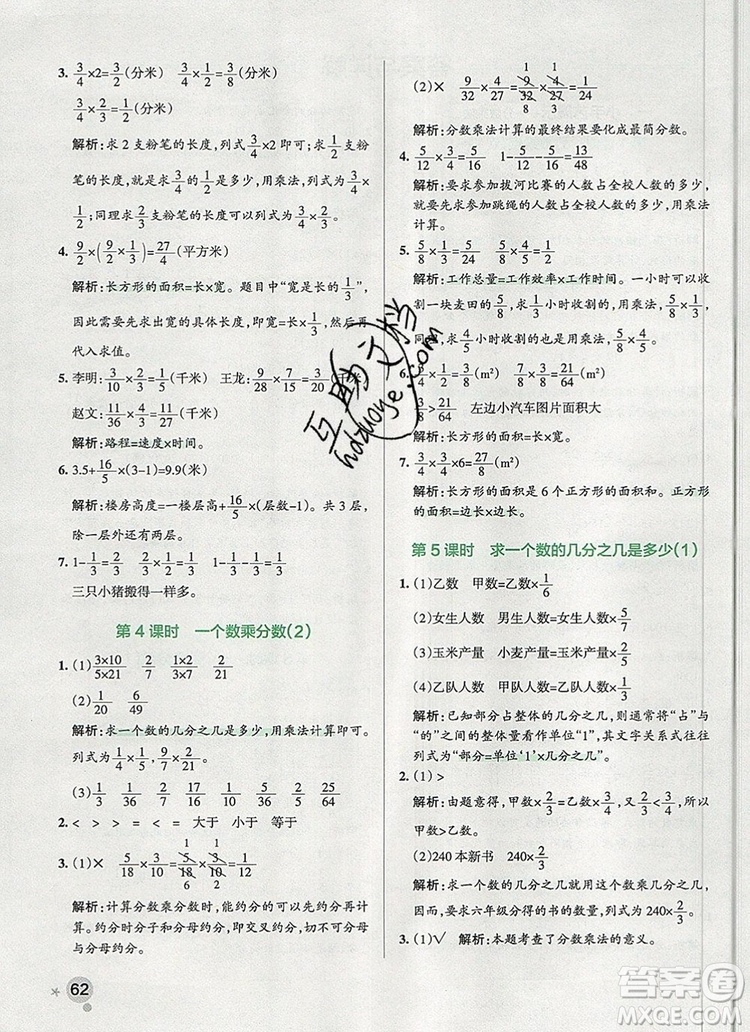 3. 3/4×2=3/2(分米) 3/4×1/2=3/8(分米)
3/4×2/3=1/2(分米)
解析:求2支粉笔的长度,列式3/4×2即可;求1/2支粉
笔的长度,就是求3/4的1/2是多少,用乘法,列式为3/4×
1/2;同理求2/3支粉笔的长度可以列式为3/4×2/3。
4. 9/2×(9/2×1/3)=27/4(平方米)
解析:长方形的面积=长×宽。题目中“宽是长的1/3”,
因此需要先求出宽的具体长度,即9/2×1/3,然后再代
入求值。
5. 李明:3/10×2/3=1/5(千米) 王龙:9/28×7/15=3/20(千米)
赵文:11/36×4/11=1/9(千米)
解析:路程=速度×时间。
6. 3.5+16/5×(3-1)=9.9(米)
解析:楼房高度=一楼层高+16/5×(层数-1)。共3层,
除一层外还有两层。
7. 1-1/3=2/3 2/3×1/2=1/3 1-1/3-1/3=1/3
三只小猪搬得一样多。
第4课时 一个数乘分数(2)
1. (1)3×10/5×21 2/7 1×2/3×7 2/21
(2)1/20 6/49
解析:求一个数的几分之几是多少,用乘法计算即可。
列式为1/4×1/5,3/7×2/7。
(3)1/21 2/21 1/7 4/21 16/21 1/10 1/5 2/5
2. < > > = < = 大于 小于 等于
3. (1)× 5/18×3/10=5/18×3/10=1/12
1 1
6 2
解析:计算分数乘分数时,能约分的可以先约分再计
算。约分时分子和分母约分,即交叉约分,不能分子
与分子约分或分母与分母约分。
62
(2)× 9/32×4/27=9/32×4/27=1/24
1 1
8 3
解析:分数乘法计算的最终结果要化成最简分数。
4. 5/12×3/4=5/16 1-5/12-5/16=13/48
解析:要求参加拔河比赛的人数占全校人数的多少,
就要求参加跳绳的人数占全校人数的多少,用乘法
计算。
5. 5/8×1/3=5/24 5/8×4/5=1/2
解析:工作总量=工作效率×工作时间。一小时可以收
割一块麦田的5/8,求1/3小时收割的用乘法,列式为5/8×
1/3。同理,求4/5小时收割的也是用乘法,列式为5/8×4/5。
6.
解析:长方形的面积=长×宽。
3/8>21/64 左边小汽车图片面积大
7. 3/4×3/4×6=27/8(m²)
解析:长方形的面积是6个正方形的面积。正方形的
面积=边长×边长。
第5课时 求一个数的几分之几是多少(1)
1. (1)乙数 甲数=乙数×1/6
(2)女生人数 男生人数=女生人数×5/7
(3)玉米产量 小麦产量=玉米产量×5/8
(4)乙队人数 甲队人数=乙队人数×4/5
解析:已知部分占整体的几分之几,则通常将“占”与
“的”之间的整体量看作单位“1”,其文字关系式往往
列式为“部分=单位‘1’×几分之几”。
2. (1)>
解析:由题意得,甲数×2/3=乙数×3/4,因为2/3<3/4,所以
甲数>乙数。
(2)240本新书 240×2/3
解析:求一个数的几分之几是多少,用乘法计算。
因而,要求六年级分得的书的数量,列式为240×2/3。
3. (1)√ 解析:本题考查了分数乘法的意义。
互助文档
hdzuoye.com
答案圈
MXQE.COM